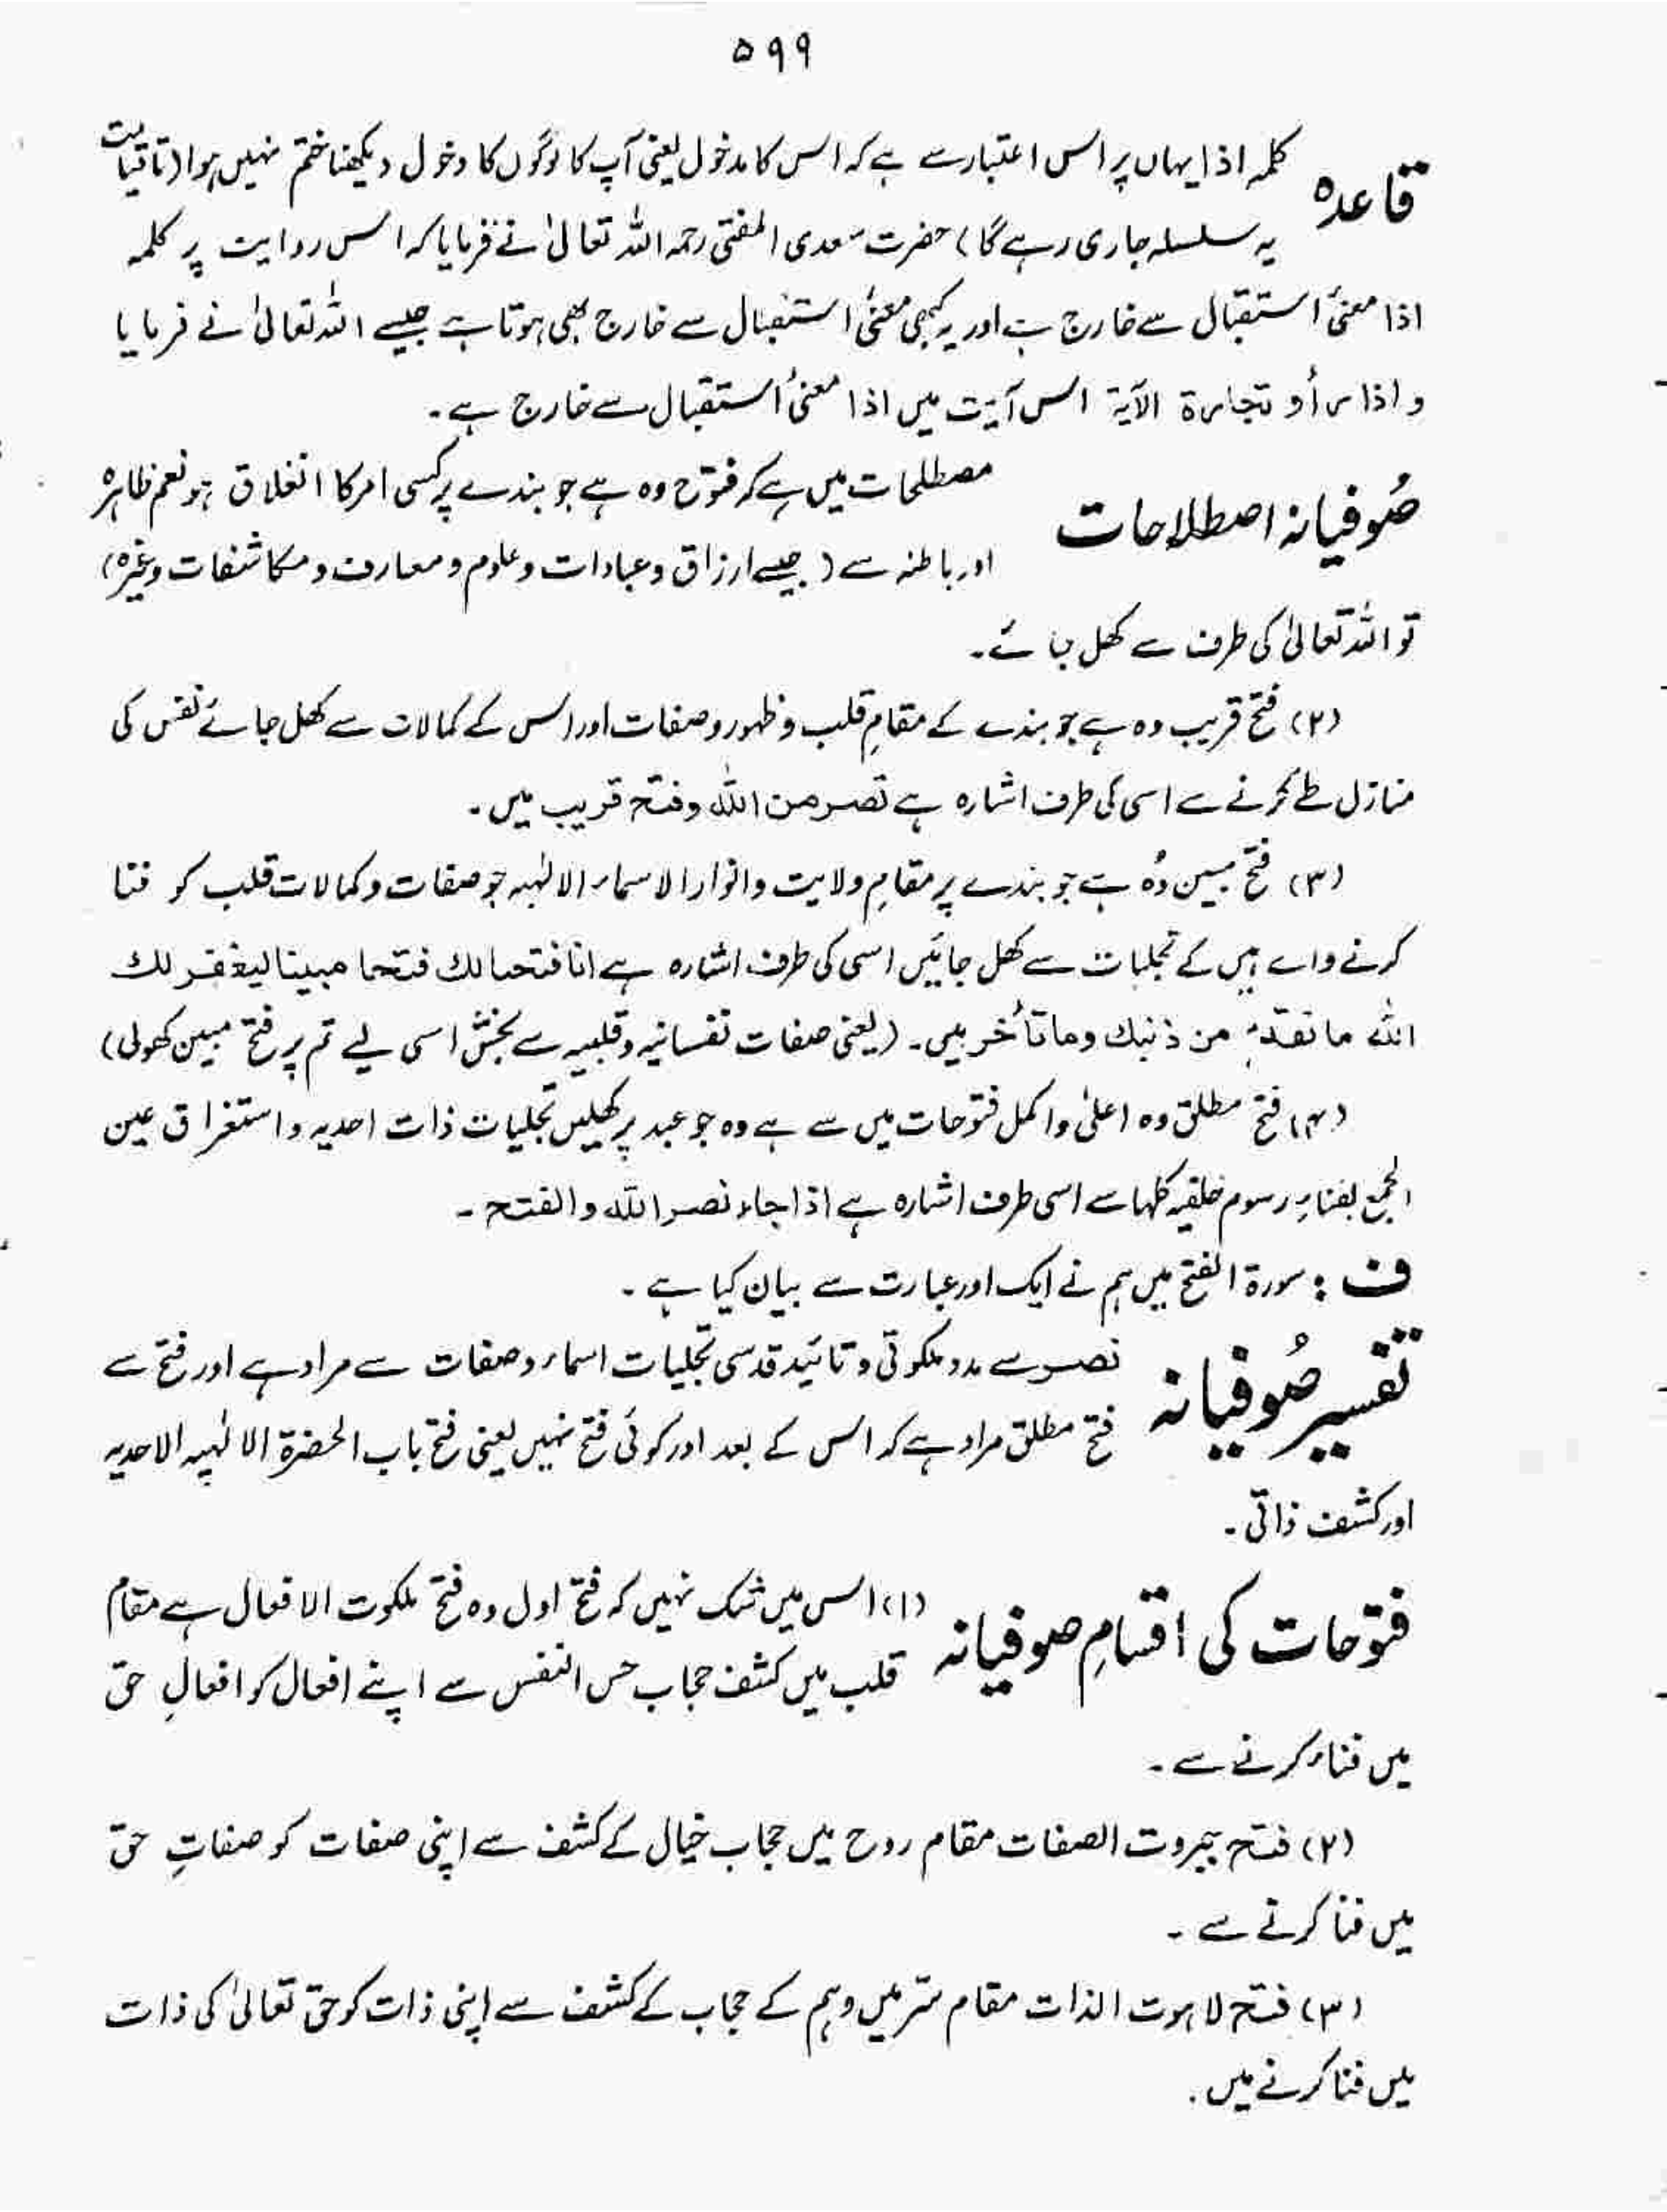 ۵۹۹
قاعدہ
کلمہ اذا یہاں پر اس اعتبار سے ہے کہ اس کا مدخول یعنی آپ کا لوگوں کا دخول دیکھنا ختم نہیں ہوا (تا قیامت
یہ سلسلہ جاری رہے گا) حضرت سعدی المفتی رحمہ اللہ تعالیٰ نے فرمایا کہ اس روایت پر کلمہ
اذا معنیٔ استقبال سے خارج ہے اور یہ کبھی معنیٔ استقبال سے خارج بھی ہوتا ہے جیسے اللہ تعالیٰ نے فرمایا
و اذا رأو تجارۃ الآیۃ اس آیت میں اذا معنیٔ استقبال سے خارج ہے۔
صُوفیانہ اصطلاحات
مصطلحات میں ہے کہ فتوح وہ ہے جو بندے پر کسی امر کا انغلاق ہو نعم ظاہرہ
اور باطنہ سے (جیسے ارزاق و عبادات و علوم و معارف و مکاشفات وغیرہ)
تو اللہ تعالیٰ کی طرف سے کھل جائے۔
(۲) فتح قریب وہ ہے جو بندے کے مقامِ قلب و ظہور و صفات اور اس کے کمالات سے کھل جائے نفس کی
منازل طے کرنے سے اسی کی طرف اشارہ ہے نصر من اللہ وفتح قریب میں۔
(۳) فتح مبین وُہ ہے جو بندے پر مقامِ ولایت و انوار الاسماء الالٰہیہ جو صفات و کمالات قلب کو فنا
کرنے والے ہیں کے تجلیات سے کھل جائیں اسی کی طرف اشارہ ہے انا فتحنا لك فتحا مبینا لیغفر لك
اللہ ما تقدّم من ذنبك وما تأخر میں۔ (یعنی صفات نفسانیہ و قلبیہ سے بخش اسی لیے تم پر فتح مبین کھولی)
(۴) فتح مطلق وہ اعلیٰ و اکمل فتوحات میں سے ہے وہ جو عبد پر کھلیں تجلیات ذات احدیہ و استغراق عین
الجمع بفناءِ رسوم خلقیہ کلہا سے اسی طرف اشارہ ہے اذا جاء نصر اللہ والفتح۔
ف : سورۃ الفتح میں ہم نے ایک اور عبارت سے بیان کیا ہے۔
تفسیر صُوفیانہ
نصر سے مدد ملکوتی و تائید قدسی تجلیات اسماء و صفات سے مراد ہے اور فتح سے
فتح مطلق مراد ہے کہ اس کے بعد اور کوئی فتح نہیں یعنی فتح باب الحضرۃ الالٰہیہ الاحدیہ
اور کشف ذاتی۔
فتوحات کی اقسامِ صوفیانہ
(۱) اس میں شک نہیں کہ فتح اول وہ فتح ملکوت الافعال ہے مقام
قلب میں کشف حجاب حس النفس سے اپنے افعال کو افعالِ حق
میں فناء کرنے سے۔
(۲) فتح جبروت الصفات مقام روح میں حجاب خیال کے کشف سے اپنی صفات کو صفاتِ حق
میں فنا کرنے سے۔
(۳) فتح لاہوت الذات مقام سّر میں وہم کے حجاب کے کشف سے اپنی ذات کو حق تعالیٰ کی ذات
میں فنا کرنے میں۔